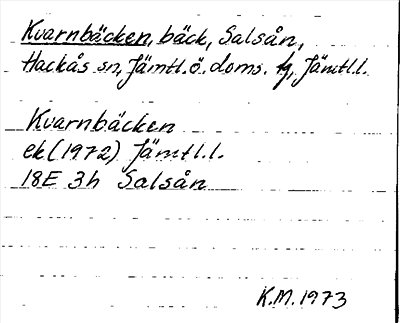 Kvarnbäcken, bäck, Salsån,
Hackås sn, Jämtl. ö. doms. tg, Jämtl. l.
Kvarnbäcken
ek (1972) Jämtl. l.
18E 3h Salsån
K.M. 1973